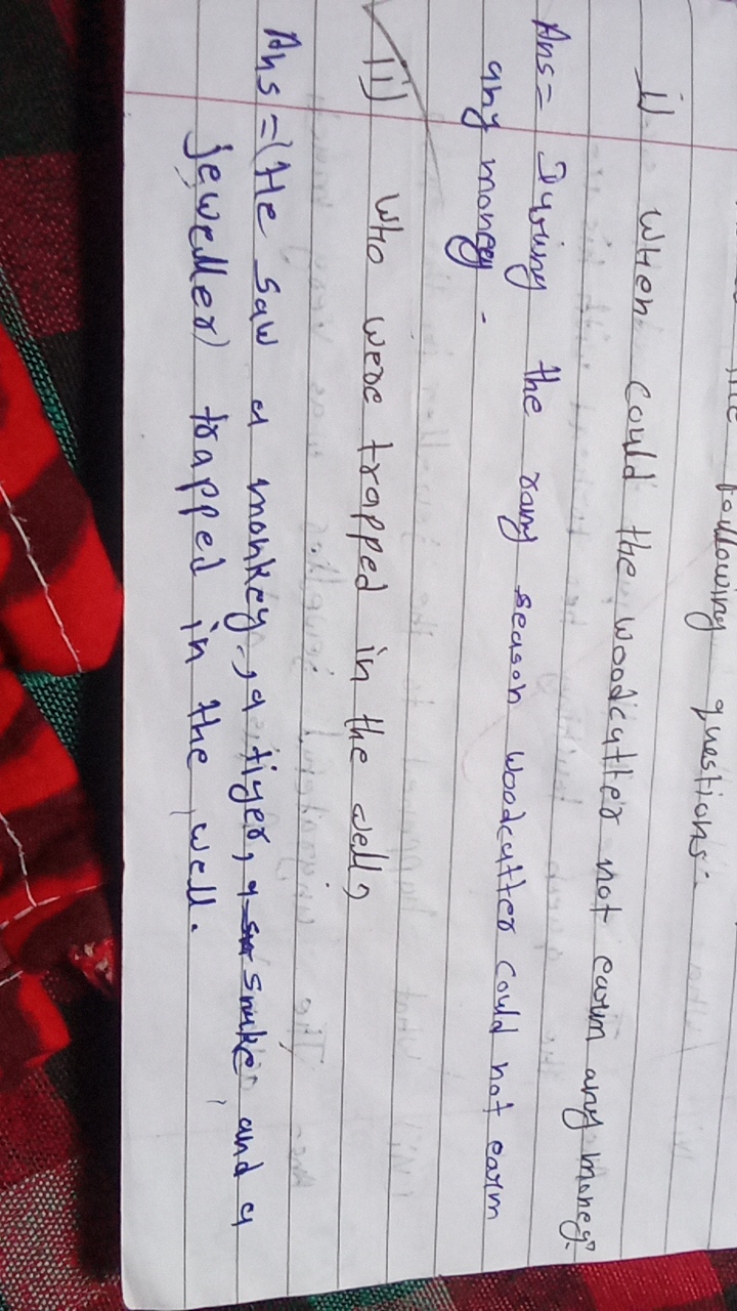 following questions:-
i) When could the woodcutter not earn any money?
Ans= During the rany season woodcutter could not earn
any money.
ii) Who were trapped in the well?
Ans = (He saw a monkey, a tiger, a snake and a
jeweller) trapped in the well.